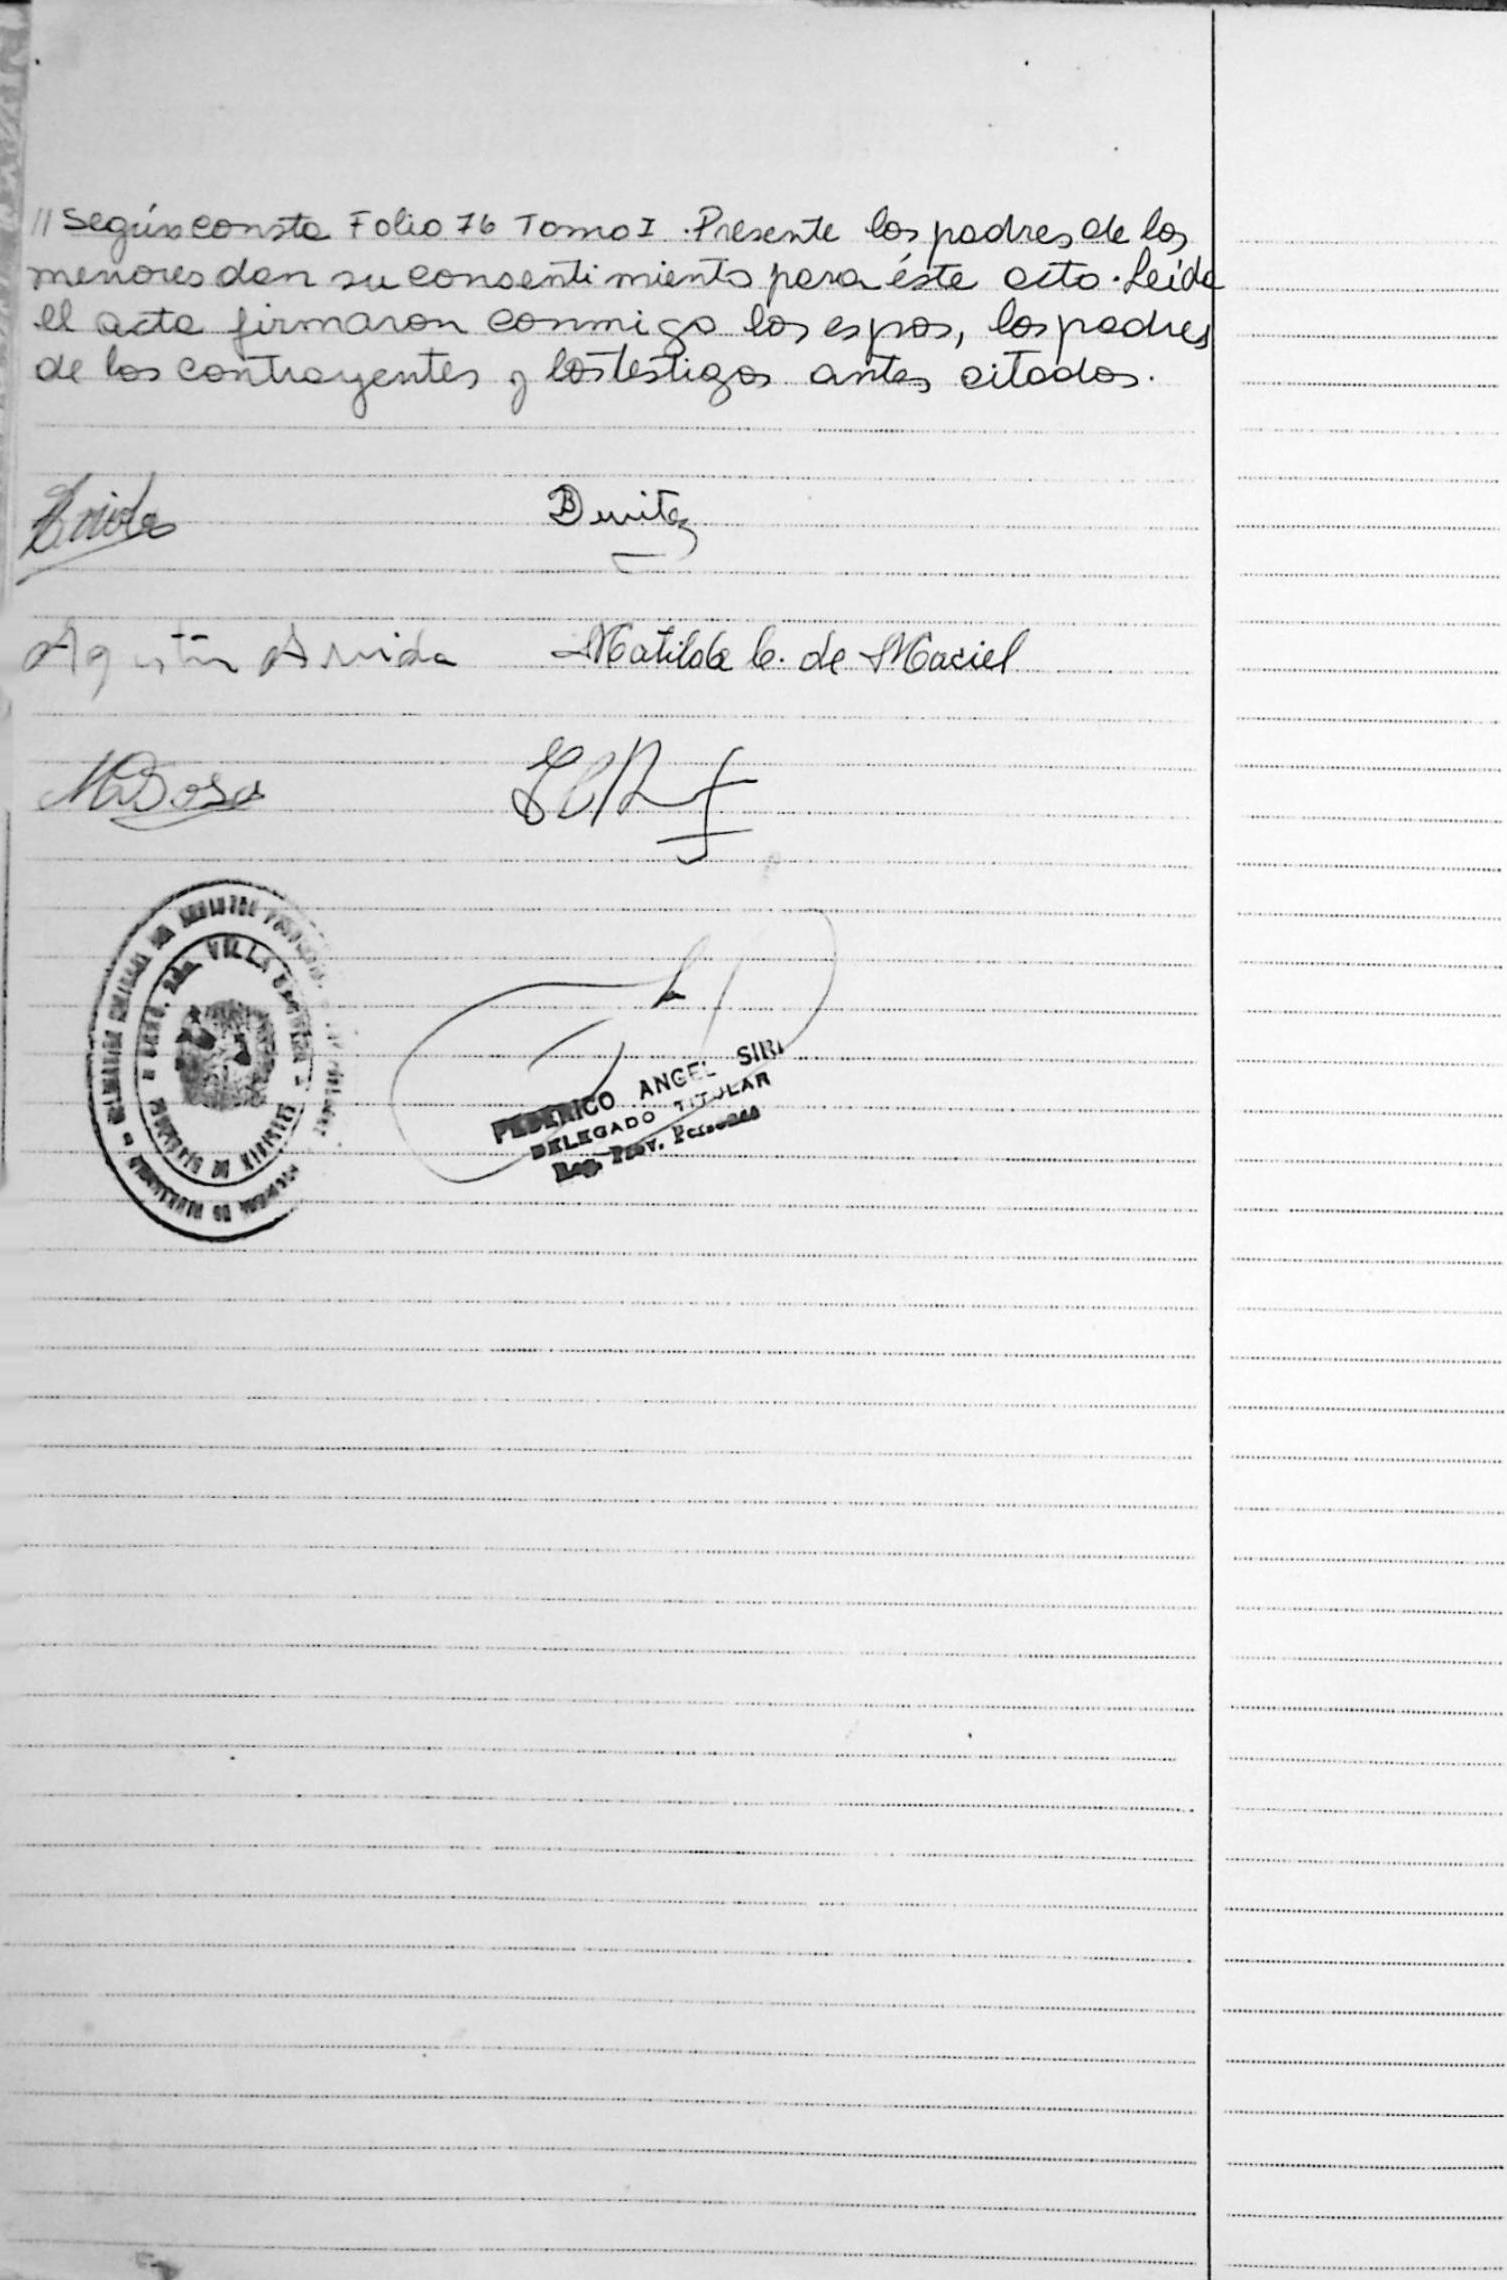 // Según consta Folio 76 Tomo I. Presente los padres de los
menores dan su consentimiento para éste acto. Leida
el acta firmaron conmigo los espos, los padres
de los contrayentes y los testigos antes citados.
Benitez
Agustin Arrida Matilde C. de Maciel
MSosa
VILLA
FEDERICO ANGEL SIRI
DELEGADO TITULAR
Reg. Prov. Personas